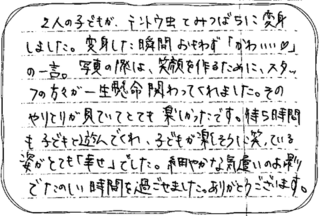 2人の子どもが、テントウ虫とみつばちに変身
しました。変身した瞬間おもわず「かわいい♡」
の一言。写真の際は、笑顔を作るために、スタッ
フの方々が一生懸命関わってくれました。その
やりとりが見ていてとても楽しかったです。待ち時間
も子どもと遊んでくれ、子どもが楽しそうに笑っている
姿がとても「幸せ」でした。細やかな気遣いのお割
でたのしい時間を過ごせました。ありがとうございます。